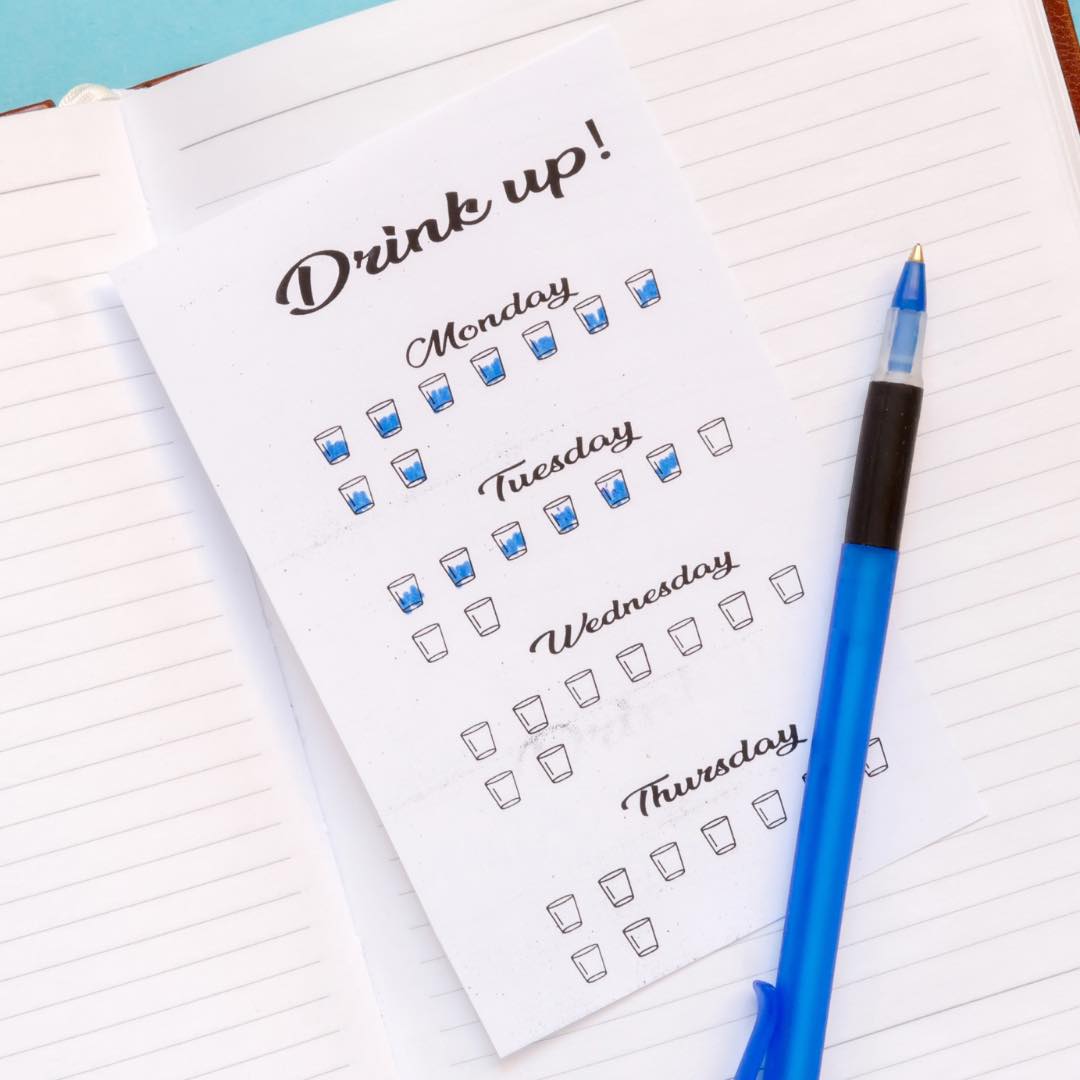 Drink up!
Monday
Tuesday
Wednesday
Thursday